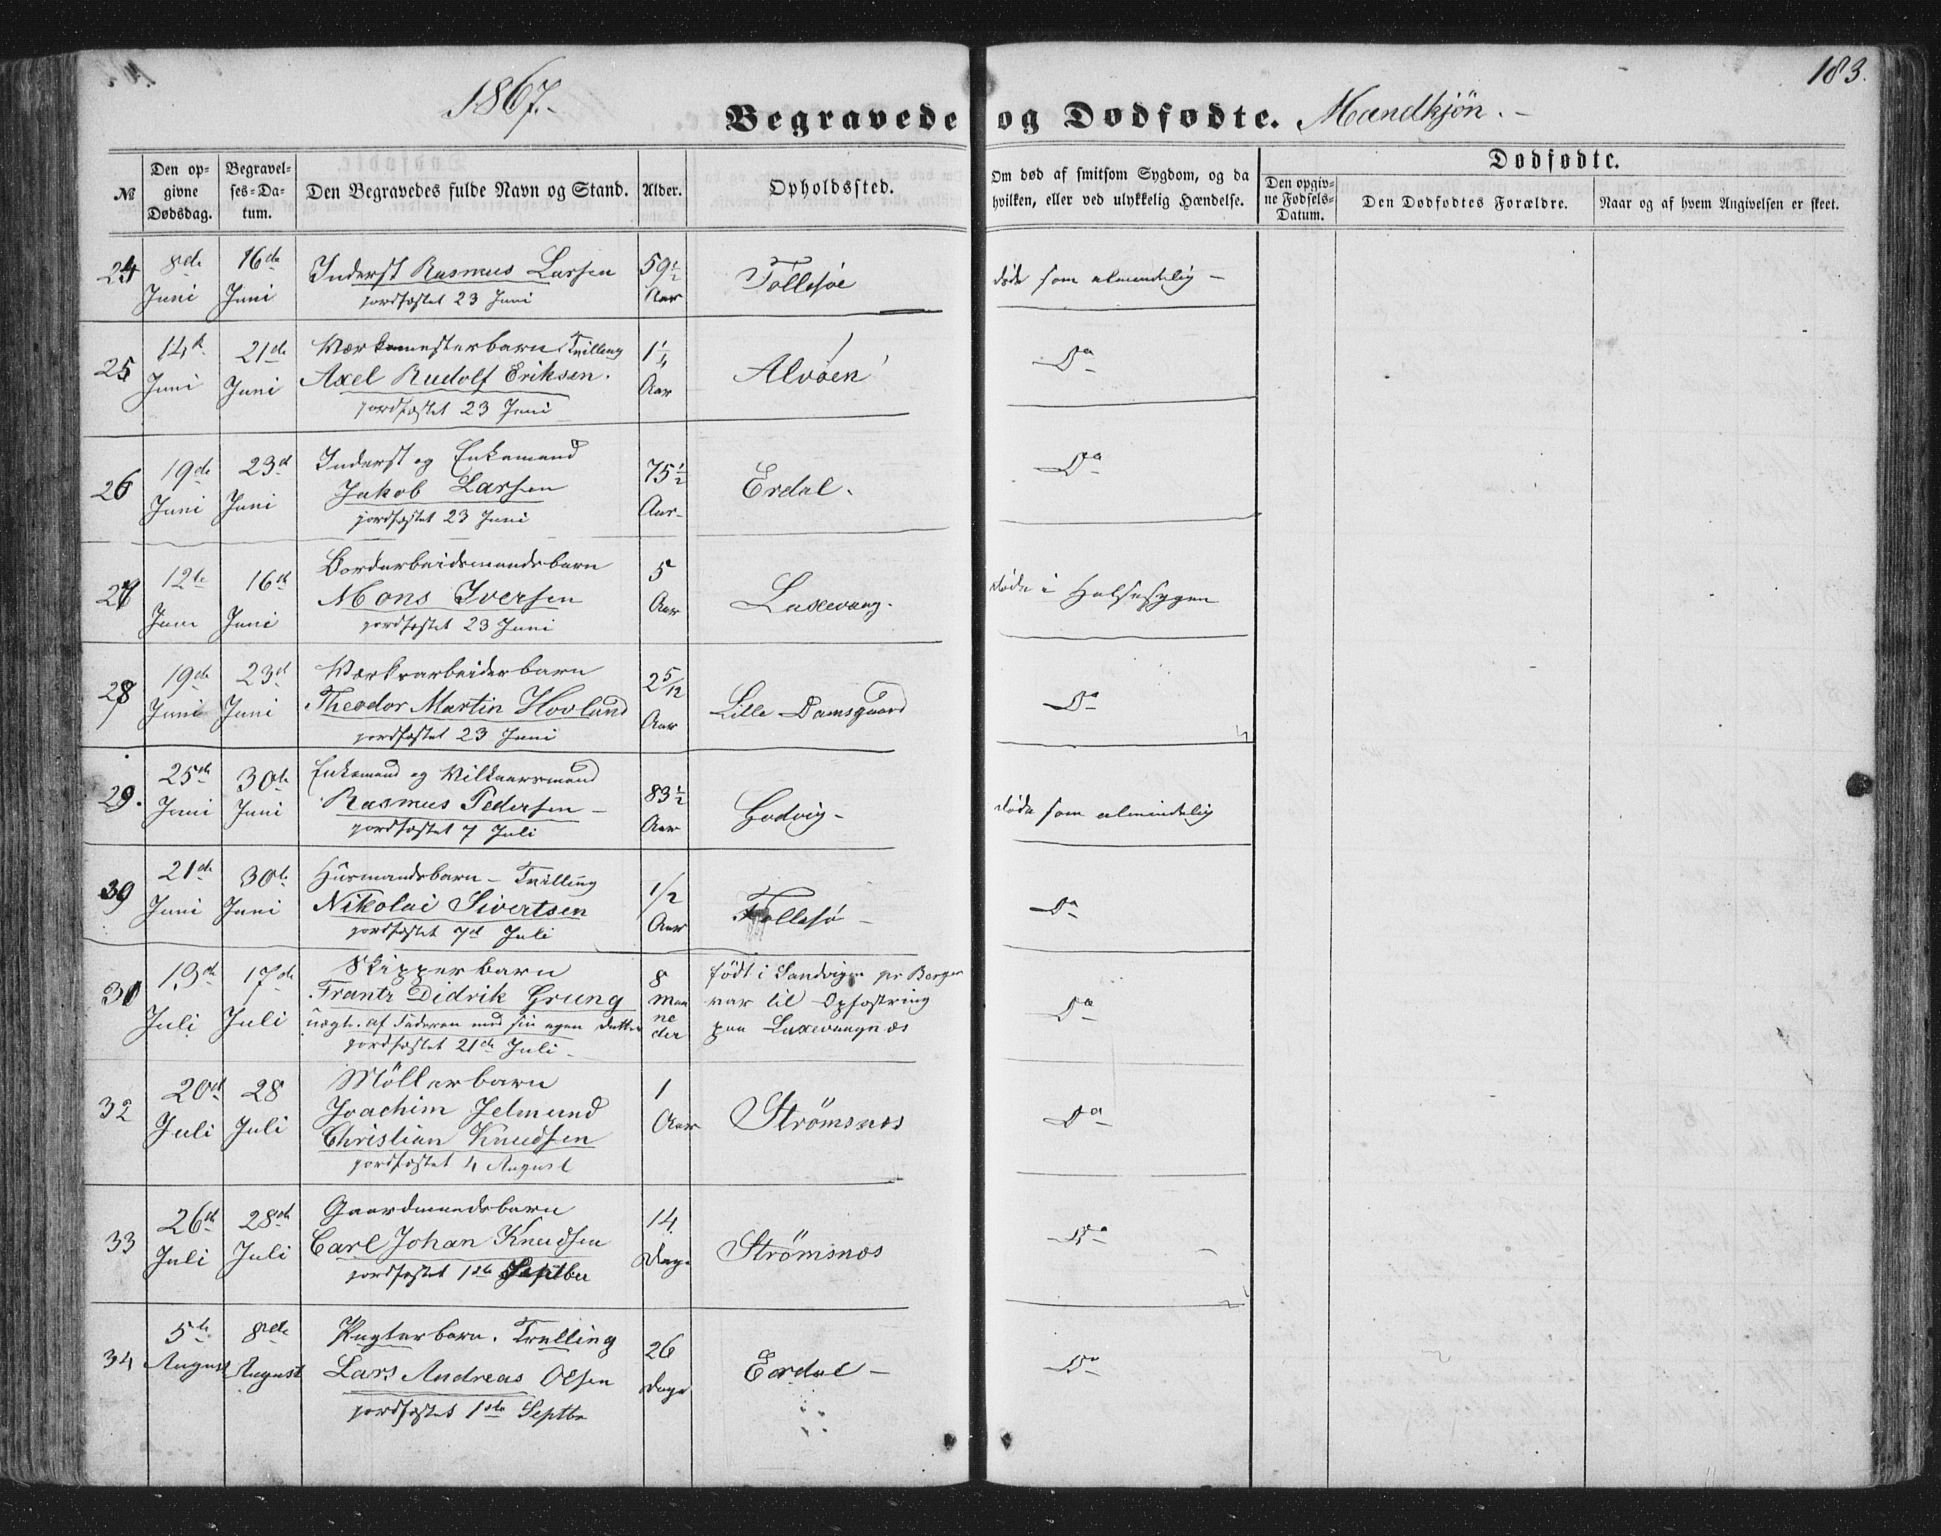 1867.
Begravede og Dødfødte. Mandkjøn.
183.
№ Den opgivne Dødsdag. Begravelses-Datum. Den Begravedes fulde Navn og Stand. Alder. Opholdssted. Om død af smitsom Sygdom, og da hvilken, eller ved ulykkelig Hændelse. Dødfødte.
Den opgivne Fødsels-Datum. Den Dødfødtes Forældre. Naar og af hvem Angivelsen er skeet.
24 8de Juni 16de Juni Inderst Rasmus Larsen 59½ Aar Follesøe døde som almindelig
jordfæstet 23 Juni
25 14d Juni 21de Juni Værkmesterbarn Tvilling 1¼ Aar Alvøen Do
Axel Rudolf Eriksen.
jordfæstet 23 Juni
26 19de Juni 23d Juni Inderst og Enkemand 75½ Aar Erdal. Do
Jakob Larsen
jordfæstet 23 Juni
27 12te Juni 16d Juni Bordarbeidsmandsbarn 5 Aar Laxevaag. døde i Halssygen
Mons Iversen
jordfæstet 23 Juni
28 19de Juni 23d Juni Værkarbeiderbarn 2 5/12 Aar Lille Damsgaard Do
Theodor Martin Hovland
jordfæstet 23 Juni
29. 25de Juni 30te Juni Enkemand og Vilkaarsmand 83½ Aar Godvig døde som almindelig
Rasmus Pedersen
jordfæstet 7 Juli
30 21de Juni 30te Juni Húsmandsbarn - Tvilling 1/2 Aar Follesø Do
Nikolai Sivertsen
jordfæstet 7d Juli
31 13de Juli 17de Juli Skipperbarn 8 Maaneder født i Sandvigen pr Bergen Do
Frantz Didrik Grung var til Opfostring
úægte. af Faderen med sin egen Datter paa Laxevaagnæs
jordfæstet 21de Juli
32 20de Juli 28 Juli Möllerbarn 1 Aar Strømsnæs Do
Joachim Jelmund
Christian Knudsen
jordfæstet 4 August
33 26d Juli 28de Juli Gaardmandsbarn 14 Dage Strømsnæs Do
Carl Johan Knudsen
jordfæstet 1ste Septber
34 5te August 8de August Pagterbarn. Trelling 26 Dage Erdal Do
Lars Andreas Olsen
jordfæstet 1ste Septbr